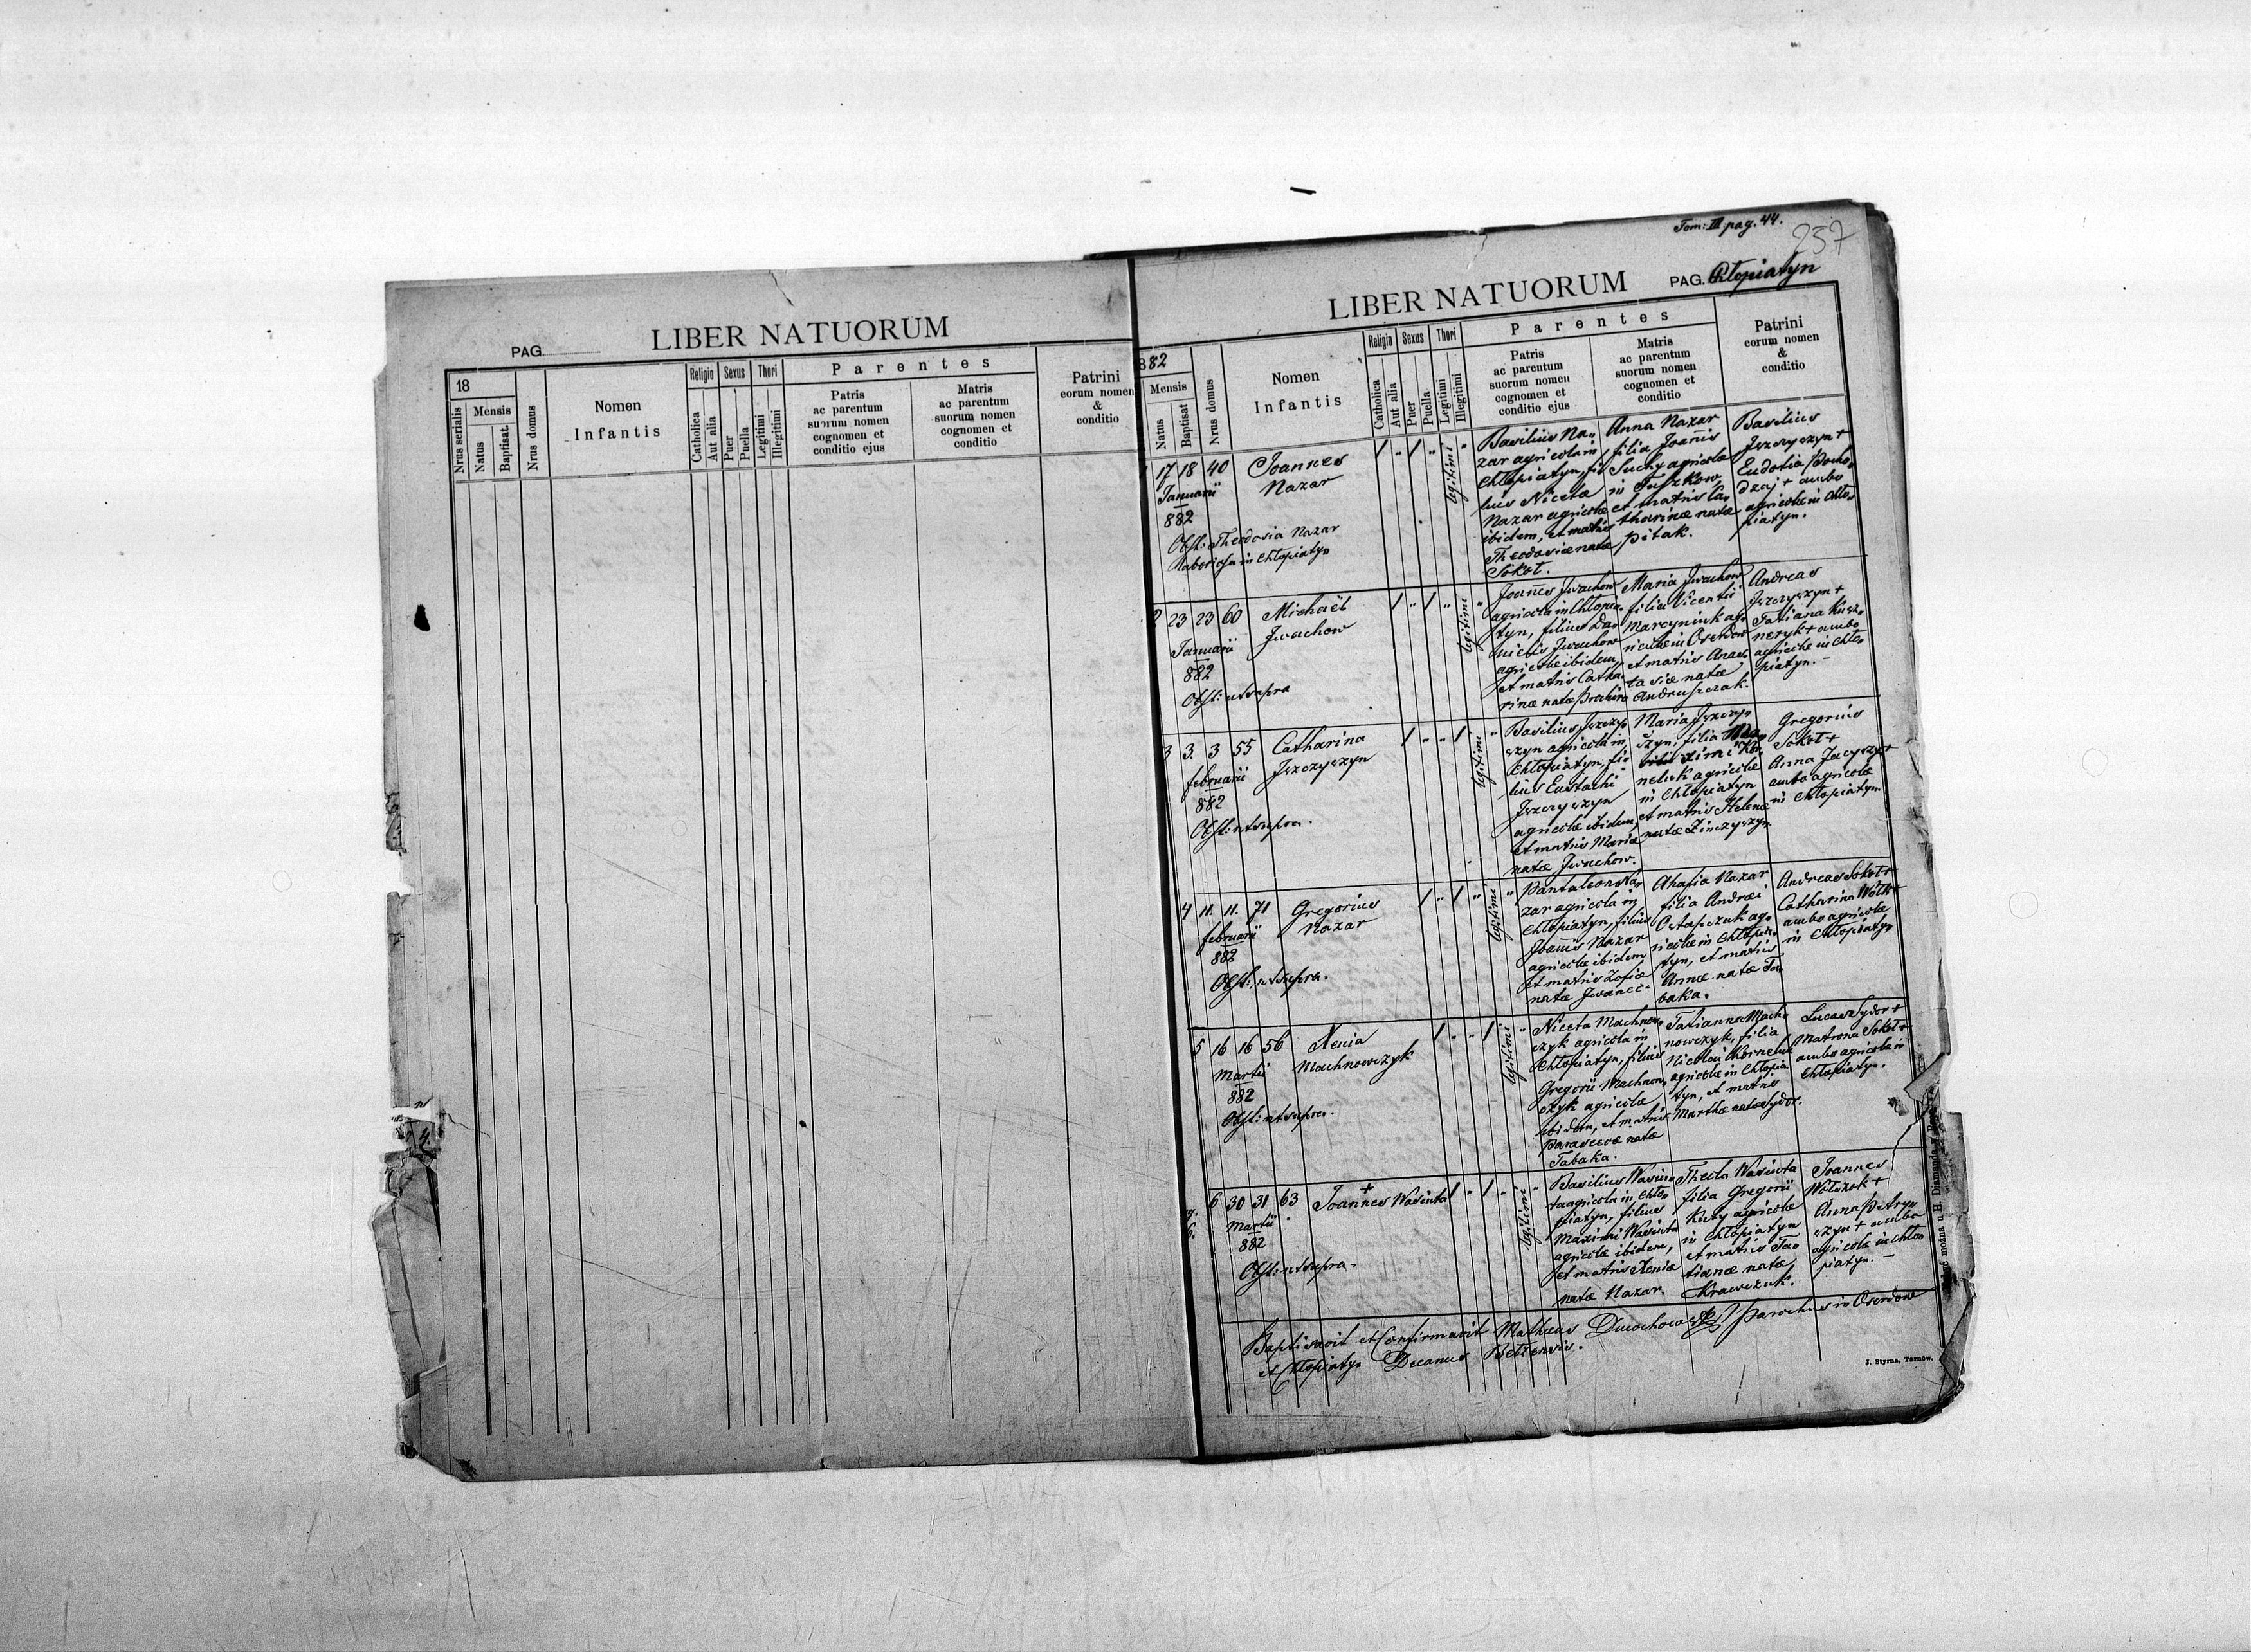 LIBER NATUORUM
PAG.
18
Nrus serialis
Mensis
Natus
Baptisat.
Nrus domus
Nomen
Infantis
Religio
Catholica
Aut alia
Sexus
Puer
Puella
Thori
Legitimi
Illegitimi
Parentes
Patris
ac parentum
suorum nomen
cognomen et
conditio ejus
Matris
ac parentum
suorum nomen
cognomen et
conditio
Patrini
eorum nomen
&
conditio
Tom: III pag. 44.
257
LIBER NATUORUM
PAG. Chłopiatyn
882
Mensis
Natus
Baptisat
Nrus domus
Nomen
Infantis
Religio
Catholica
Aut alia
Sexus
Puer
Puella
Thori
Legitimi
Illegitimi
Parentes
Patris
ac parentum
suorum nomen
cognomen et
conditio ejus
Matris
ac parentum
suorum nomen
cognomen et
conditio
Patrini
eorum nomen
&
conditio
17 18 40
Januarii
882
Joannes
Nazar
Obst: Theodosia Nazar
in Chłopiatyn
legitimi
Basilius Na„
zar agricola in
Chłopiatyn, fi„
lius Nicetae
Nazar agricolae
ibidem, et matris
Theodosiae natae
Sokoł.
Anna Nazar
filia Joannis
Suchy agricolae
in Tuszkow
et matris Ca„
tharinae natae
Pitak.
Basilius
Jszczyszyn +
Eudoxia
+ ambo
agricolae in Chło„
piatyn.
2 23 23 60
Januarii
882
Michaël
Jwachow
Obst: ut supra
legitimi
Joannes Jwachow
agricola in Chłopia„
tyn, filius Da„
nielis Jwachow
agricolae ibidem,
et matris Catha„
rinae natae
Maria Jwachow
filia Vicentii
Marcyniuk ag„
ricolae in Oserdow
et matris Anas„
tasiae natae
Andruszczak.
Andreas
Jszczyszyn +
Tatiana Kusz„
neryk + ambo
agricolae in Chło„
piatyn. –
3 3. 3 55
februarii
882
Catharina
Jszczyszyn
Obst: ut supra.
legitimi
Basilius Jszczy„
szyn agricola in
Chłopiatyn, fi„
lius Eustachi
Jszczyszyn
agricolae ibidem,
et matris Mariae
natae Jwachow.
Maria Jszczy„
szyn, filia Ma„
ximi Kor„
neluk agricolae
in Chłopiatyn
et matris Helenae
natae Zinczyszyn
Gregorius
Sokoł +
Anna Jacyszyn +
ambo agricolae
in Chłopiatyn
4 11. 11. 71
februarii
882
Gregorius
Nazar
Obst: ut supra.
legitimi
Pantaleon Na„
zar agricola in
Chłopiatyn, filius
Joannis Nazar
agricolae ibidem
et matris Zofiae
natae
Ahafia Nazar
filia Andrei
Ostapczuk ag„
ricolae in Chłopia„
tyn, et matris
Annae natae Ta„
baka.
Andreas Sokoł +
Catharina Wołk +
ambo agricolae
in Chłopiatyn
5 16 16 56
Martii
882
Xenia
Machnowczyk
Obst: ut supra.
legitimi
Niceta Machnow„
czyk agricola in
Chłopiatyn, filius
Gregorii Machnow„
czyk agricolae
ibidem, et matris
Parascevae natae
Tabaka.
Tatianna Mach„
nowczyk, filia
Nicolai Korneluk
agricolae in Chłopia„
tyn, et matris
Marthae natae Sydor.
Lucas Sydor +
Matrona Sokoł +
ambo agricolae in
Chłopiatyn.
6 30 31 63
Martii
882
+
Joannes Wasiuta
Obst: ut supra.
legitimi
Basilius Wasiu„
ta agricola in Chło„
piatyn, filius
Maximi Wasiuta
agricolae ibidem,
et matris Xeniae
natae Nazar.
Thecla Wasiuta
filia Gregorii
Kuzy agricolae
in Chłopiatyn
et matris Ta„
tianae natae
Krawczuk.
Joannes
Wołczok +
Anna Petryn„
szyn + ambo
agricolae in Chło„
piatyn. –
Baptisavit et Confirmavit Matheus Parochus in Oserdow
et Chłopiatyn Decanus Bełzensis.
można u H. Diamanda
J. Styrna, Tarnów.